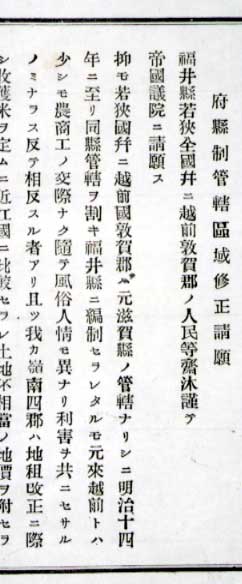 府縣制管轄區域修正請願
福井縣若狹全國幷ニ越前敦賀郡ノ人民等齋沐謹テ
帝國議院ニ請願ス
抑モ若狹國幷ニ越前國敦賀郡ハ元滋賀縣ノ管轄ナリシニ明治十四
年ニ至リ同縣管轄ヲ割キ福井縣ニ編制セラレタルモ元來越前トハ
少シモ農商工ノ交際ナク隨テ風俗人情モ異ナリ利害ヲ共ニセサル
ノミナラス反テ相反スル者アリ且ツ我カ嶺南四郡ハ地租改正ニ際
シ收穫米ヲ定ムニ近江國ニ比較セラレ土地不相當ノ地價ヲ附セラ